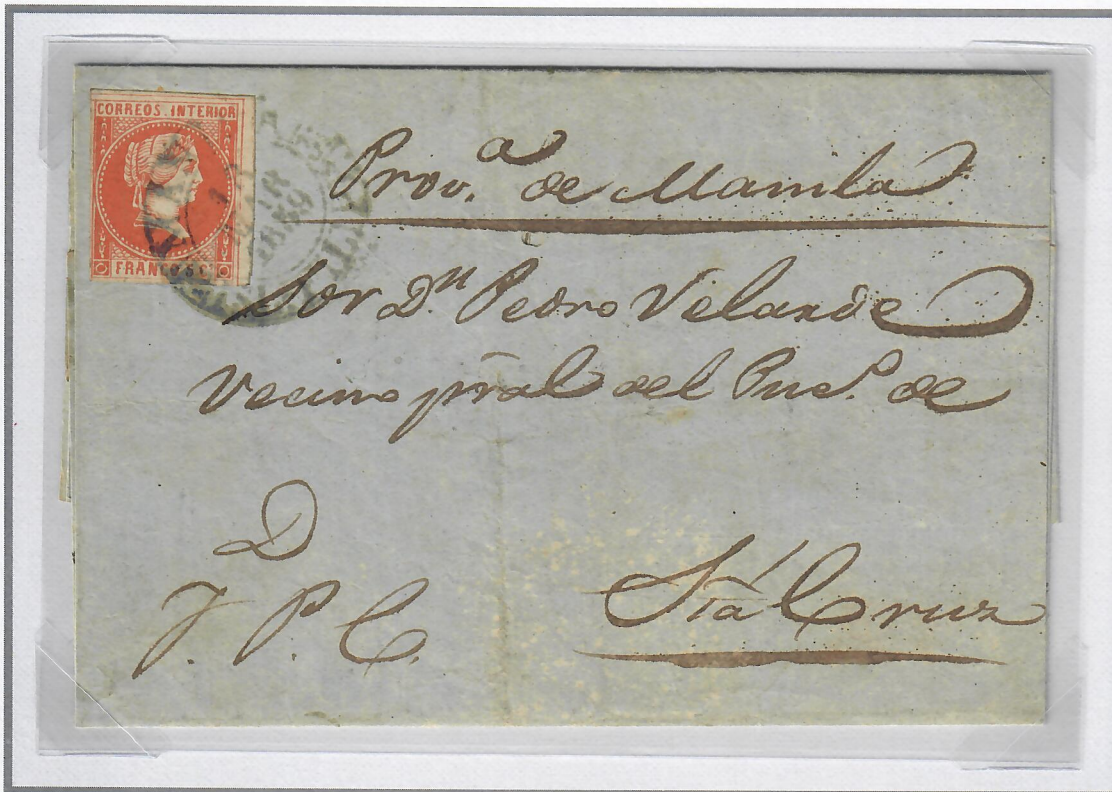 CORREOS. INTERIOR
FRANCO 5 C.
1859
Prov.ª de Manila
Sor Dn. Pedro Velarde
Vecino pral del Pueº. de
D
J. P. C.
Sta Cruz